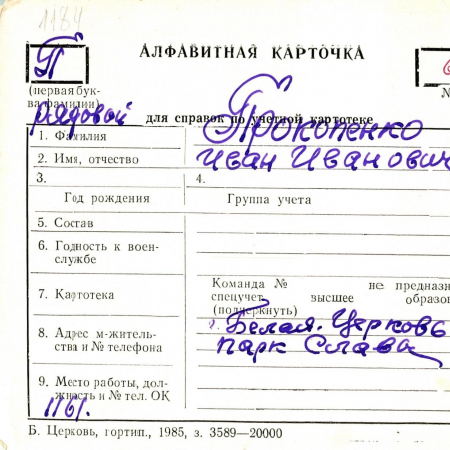 1184
АЛФАВИТНАЯ КАРТОЧКА
П
(первая бук-
ва фамилии)
рядовой
для справок по учетной картотеке
1. Фамилия Прокопенко
2. Имя, отчество Иван Иванович
3. 4.
Год рождения Группа учета
5. Состав
6. Годность к воен-
службе
7. Картотека
Команда № не предназн
спецучет, высшее образо
(подчеркнуть)
8. Адрес м-житель-
ства и № телефона
г. Белая-Церковь
парк Слава
9. Место работы, дол-
жность и № тел. ОК
1161.
Б. Церковь, гортип., 1985, з. 3589—20000